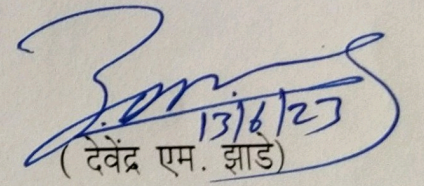 13/6/23
(देवेंद्र एम. झाडे)